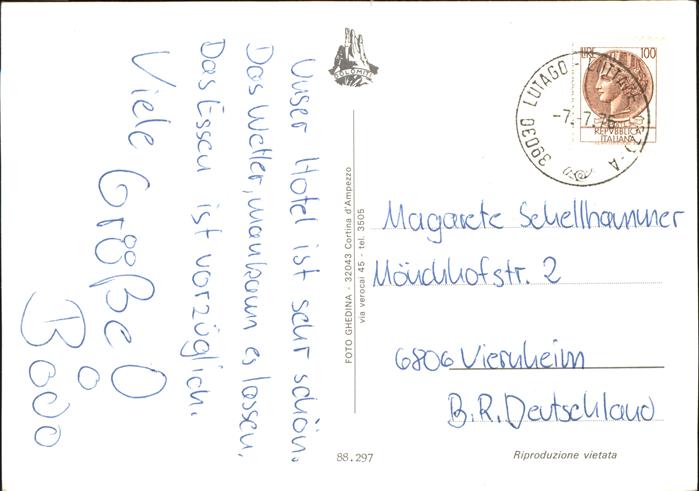 Unser Hotel ist sehr schön.
Das Wetter, man kann es lassen.
Das Essen ist vorzüglich.
Viele Grüße
Bodo
DOLOMITI
FOTO GHEDINA - 32043 Cortina d'Ampezzo
via verocai 45 - tel. 3505
LIRE 100
REPVBBLICA
ITALIANA
39030 LUTAGO - LUTTACH
-7.-7.76
Magarete Schellhammer
Mönchhofstr. 2
6806 Viernheim
B.R. Deutschland
88.297
Riproduzione vietata